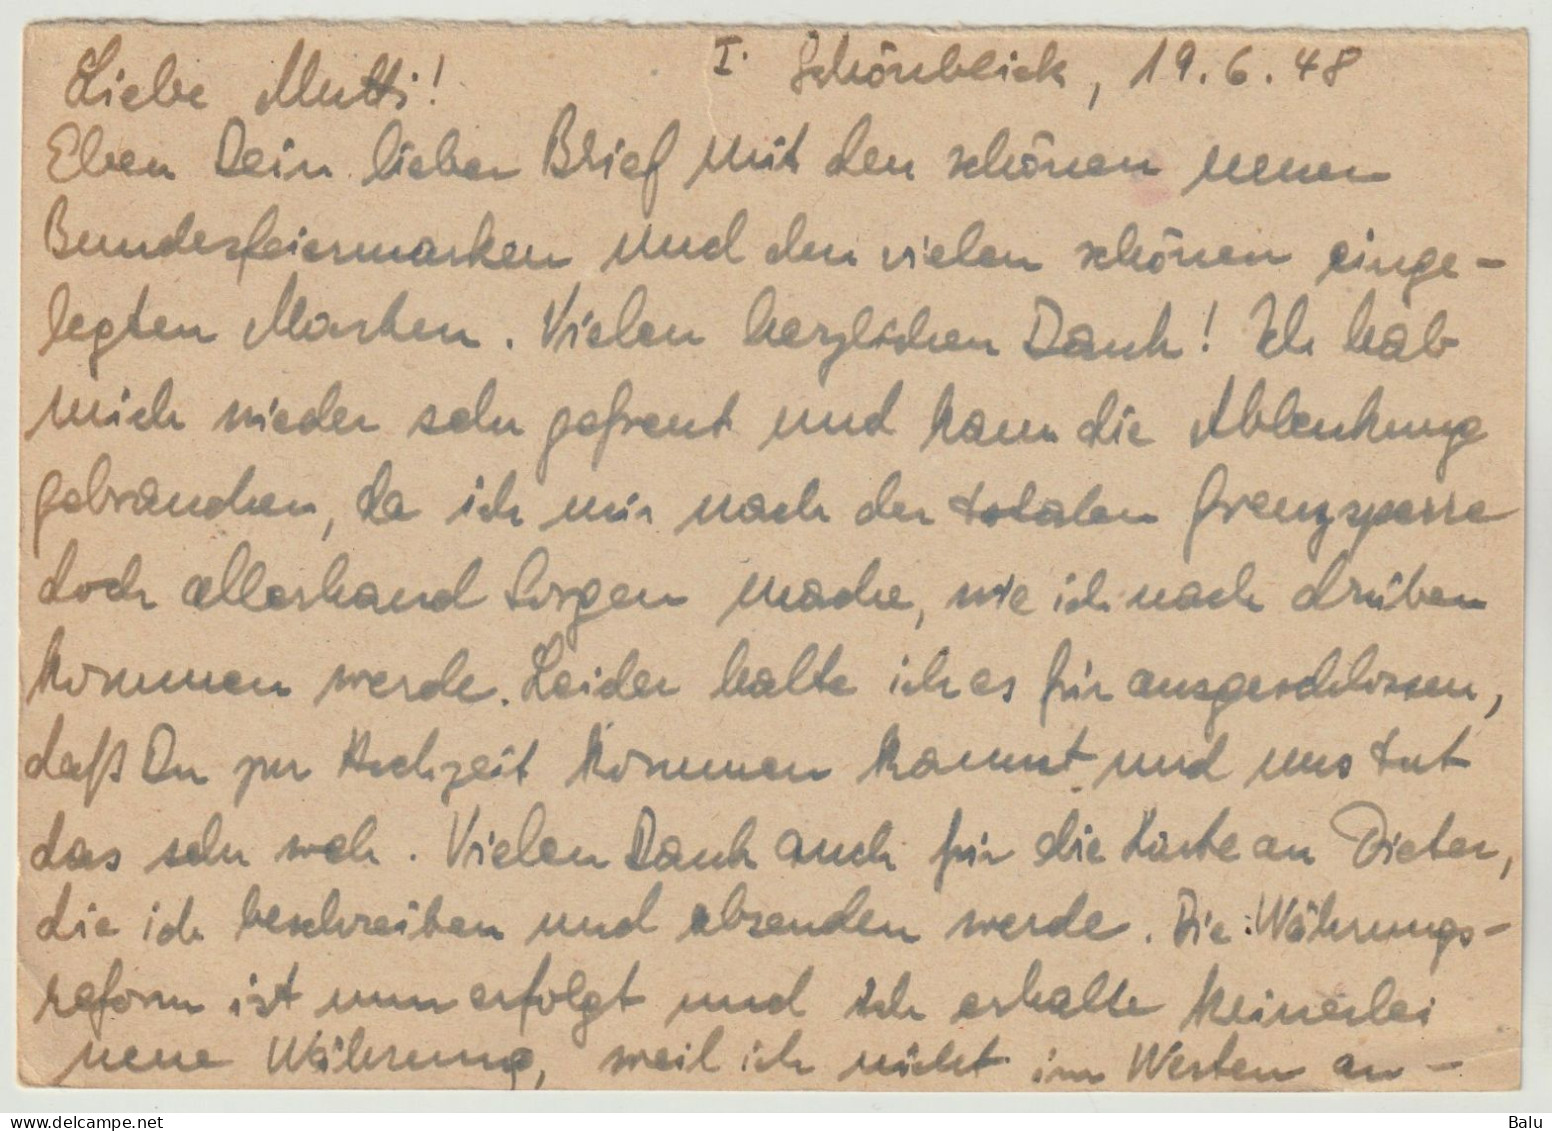 I. Schönblick, 19.6.48
Liebe Mutti!
Eben Dein lieber Brief mit den schönen neuen
Bundesfeiermarken und den vielen schönen einge-
legten Marken. Vielen herzlichen Dank! Ich hab
mich wieder sehr gefreut und kann die Ablenkung
gebrauchen, da ich mir nach der totalen Grenzsperre
doch allerhand Sorgen mache, wie ich nach drüben
kommen werde. Leider halte ich es für ausgeschlossen,
daß Du zur Hochzeit kommen kannst und uns tut
das sehr weh. Vielen Dank auch für die Karte an Dieter,
die ich beschreiben und absenden werde. Die Währungs-
reform ist nun erfolgt und ich erhalte keinerlei
neue Währung, weil ich nicht im Westen an-
www.delcampe.net
Balu